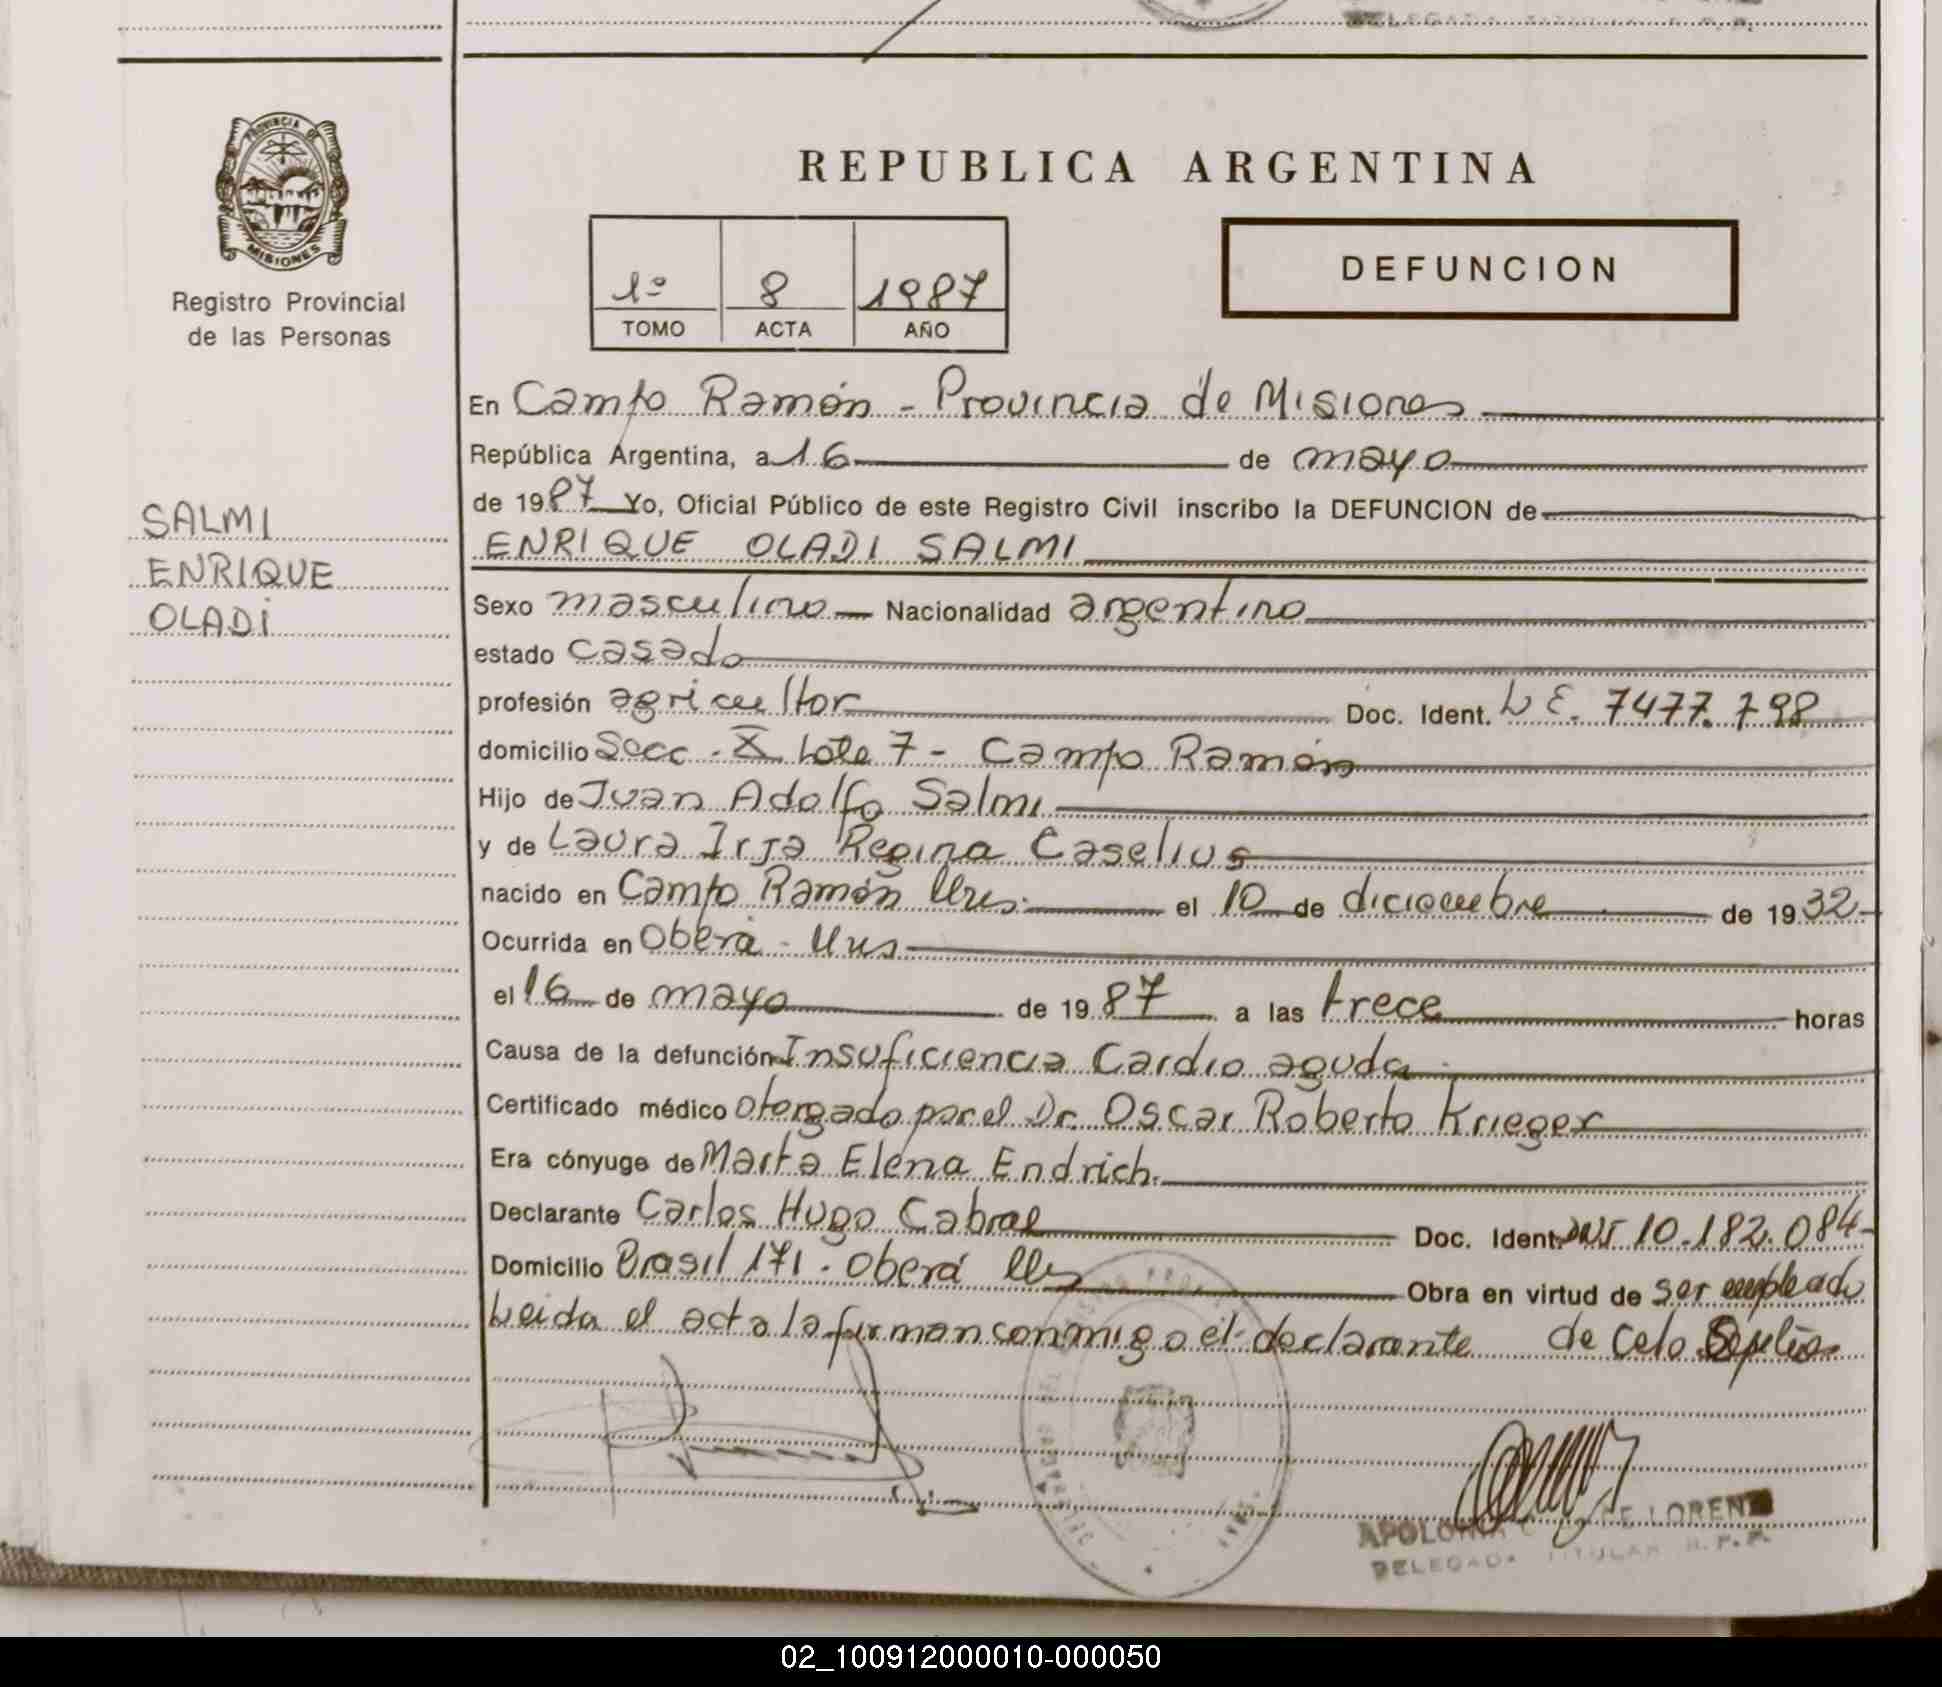 PROVINCIA DE
MISIONES
Registro Provincial
de las Personas
SALMI
ENRIQUE
OLADI
REPUBLICA ARGENTINA
1º 8 1987
TOMO ACTA AÑO
DEFUNCION
En Campo Ramón - Provincia de Misiones
República Argentina, a 16 de mayo
de 1987 Yo, Oficial Público de este Registro Civil inscribo la DEFUNCION de
ENRIQUE OLADI SALMI
Sexo masculino Nacionalidad argentino
estado casado
profesión agricultor Doc. Ident. L E. 7477.798
domicilio Secc - X Lote 7 - Campo Ramón
Hijo de Juan Adolfo Salmi
y de Laura Irja Regina Caselius
nacido en Campo Ramón Mnes. el 10 de diciembre de 1932
Ocurrida en Oberá - Mnes
el 16 de mayo de 1987 a las trece horas
Causa de la defunción Insuficiencia Cardio aguda
Certificado médico otorgado por el Dr. Oscar Roberto Krieger
Era cónyuge de Marta Elena Endrich.
Declarante Carlos Hugo Cabral Doc. Ident. DNI 10.182.084
Domicilio Brasil 171 - Oberá Mnes Obra en virtud de ser empleado
Leida el acta la firman conmigo el declarante de
DE LORENZ
DELEGADA TITULAR R. P. P.
02_100912000010-000050